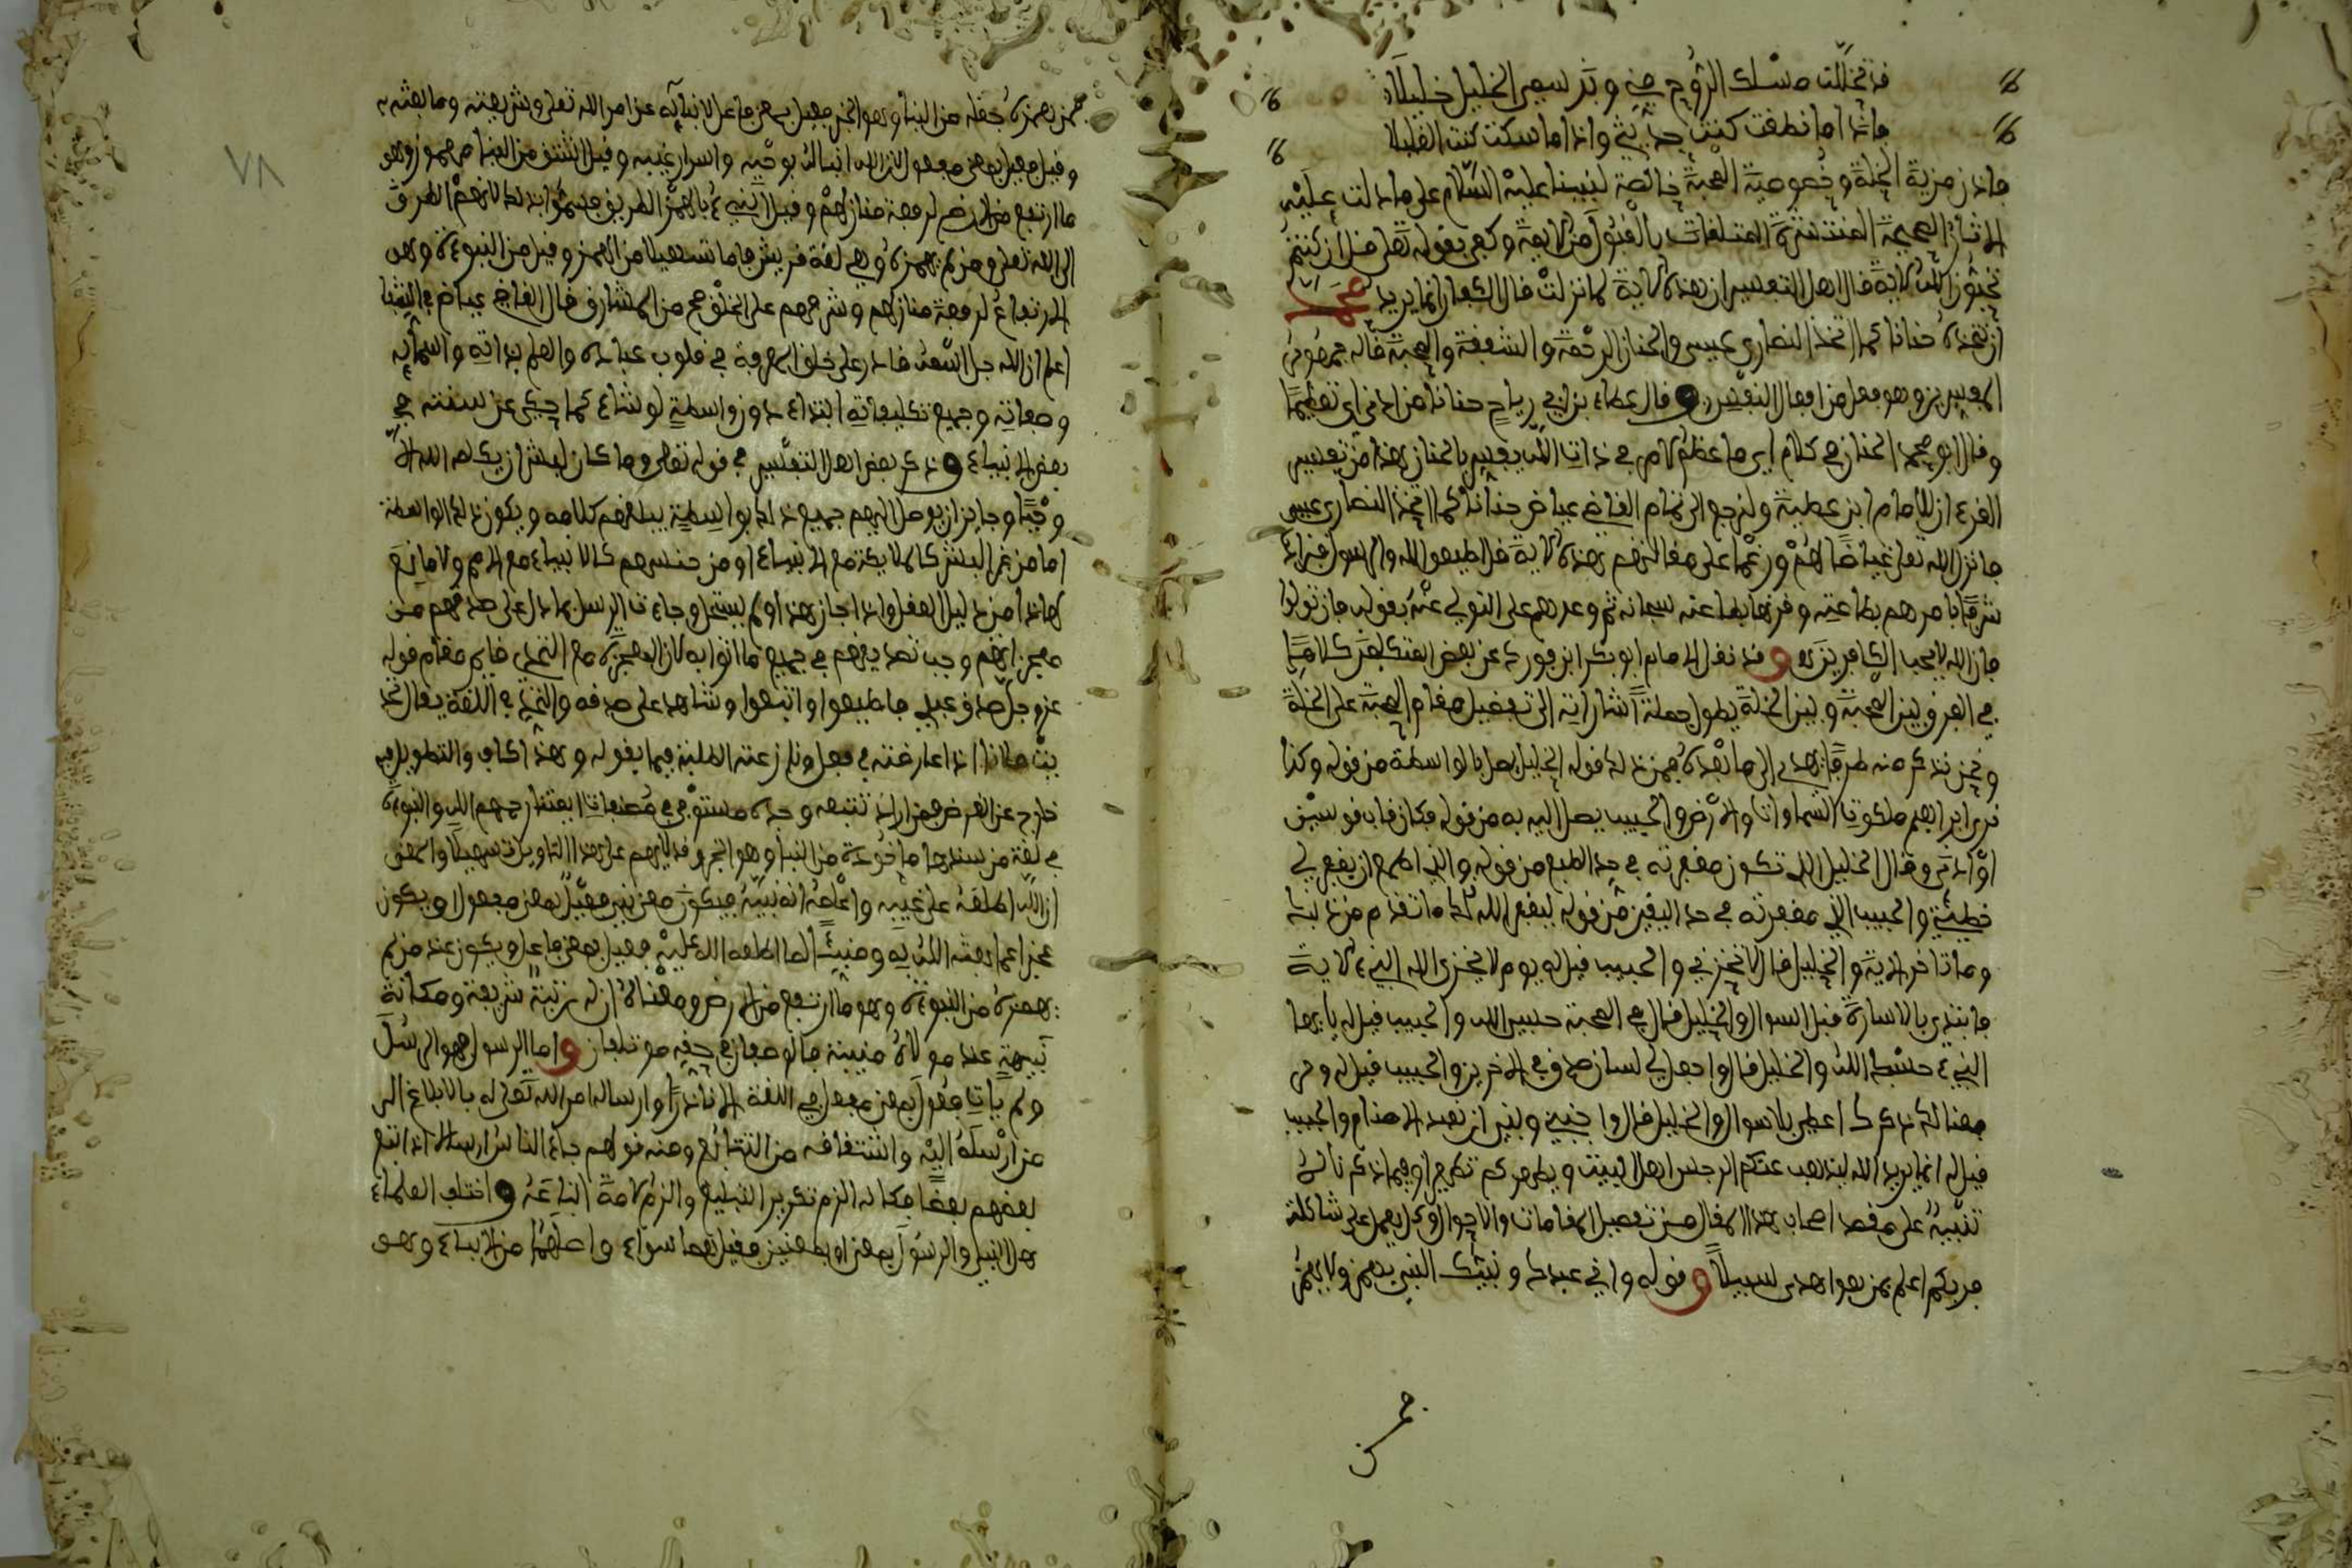 قد تخللت مسلك الروح مني وبذا سمي الخليل خليلا
فاذا ما نطقت كنت حديثي واذا ما سكت كنت الغليلا
فاذن مزية الخلة وخصوصية المحبة خالصة لنبينا عليه السلام على ما دلت عليه
الاثار الصحيحة المنتشرة المتلقات بالقبول من الامة وكفى بقوله تعلى قل ان كنتم
تحبون الله الاية قال اهل التفسير ان هذه الاية لما نزلت قال الكفار انما يريد محمد
ان نتخذه حنانا كما اتخذ النصارى عيسى والحنان الرحمة والشفقة والمحبة قاله جمهور من
المفسرين وهو فعل من افعال النفس وقال عطاء بن ابي رباح حنانا من لدنا اي تعظيما
وقال ابو محمد الحنان في كلام ايضا ما عظم من الامر في ذات الله يفسر بالحنان هذا من تفسير
القرءان للامام ابن عطية ولنرجع الى تمام القاضي عياض حنانا كما اتخذ النصارى عيسى
فانزل الله تعلى غيظا لهم ورغما على مقالتهم هذه الاية قل اطيعوا الله والرسول فزاده
شرفا بامرهم بطاعته وقرنها بطاعته سبحانه ثم وعدهم على التولي عنه بقوله فان تولوا
فان الله لا يحب الكافرين وقد نقل الامام ابو بكر ابن فورك عن بعض المتكلمين كلاما
في الفرق بين المحبة وبين الخلة يطول جملة اشاراته الى تفضيل مقام المحبة على الخلة
ونحن نذكر منه طرفا يهدي الى ما بعده فمن ذلك قوله الخليل يصل بالواسطة من قوله وكذا
نري ابراهيم ملكوت السماوات والارض والحبيب يصل اليه به من قوله فكان قاب قوسين
او ادنى وقال الخليل الذي تكون مغفرته في حد الطمع من قوله والذي اطمع ان يغفر لي
خطيئتي والحبيب الذي مغفرته في حد اليقين من قوله ليغفر لك الله ما تقدم من ذنبك
وما تاخر الاية والخليل قال لا تخزني والحبيب قيل له يوم لا يخزي الله النبيء الاية
فابتدي بالبشارة قبل السوال والخليل قال في المحنة حسبي الله والحبيب قيل له يا يها
النبيء حسبك الله والخليل قال واجعل لي لسان صدق في الاخرين والحبيب قيل له ورفعنا
لك ذكرك اعطي بلا سوال والخليل قال واجنبني وبني ان نعبد الاصنام والحبيب
قيل له انما يريد الله ليذهب عنكم الرجس اهل البيت ويطهركم تطهيرا وفيما ذكرناه
تنبيه على مقصد اصحاب هذا المقال من تفضيل المقامات والاحوال وكل يعمل على شاكلته
فربكم اعلم بمن هو اهدى سبيلا وقوله واني عبدك ونبيك النبي يهمز ولا يهمز
فمن
فمن همزه جعله من النبا وهو الخبر فعيل بمعنى فاعل لانبائه عن امر الله تعلى وشريعته وما بعثه به
وقيل فعيل بمعنى مفعول لان الله انباه بوحيه واسرار غيبه وقيل اشتق من النبا مهموز وهو
ما ارتفع من الارض لرفعة منازلهم وقيل النبيء بالهمز الطريق فسموا بذلك لانهم الطرق
الى الله تعلى ومن لم يهمزه وهي لغة قريش فاما تسهيلا من الهمز وقيل من النبوة وهو
الارتفاع لرفعة منازلهم وشرفهم على الخلق من المشارق قال القاضي عياض في الشفا
اعلم ان الله جل اسمه قادر على خلق المعرفة في قلوب عباده والعلم بذاته واسمائه
وصفاته وجميع تكليفاته ابتداء دون واسطة لو شاء كما حكي عن سنته في
بعض الانبياء وذكر بعض اهل التفسير في قوله تعلى وما كان لبشر ان يكلمه الله الا
وحيا وجايز ان يوصل اليهم جميع ذلك بواسطة يبلغهم كلامه ويكون ذلك الواسطة
اما من غير البشر كالملايكة مع الانبياء او من جنسهم كالانبياء مع الامم ولا مانع
لهاذا من دليل العقل واذا جاز هذا ولم يستحل وجاءت الرسل بما دل على صدقهم من
معجزاتهم وجب تصديقهم في جميع ما اتوا به لان المعجزة مع التحدي قايم مقام قوله
عز وجل صدق عبدي فاطيعوا واتبعوا وشاهد على صدقه والتحدي في اللغة يقال تحد
يت فلانا اذا عارضته في فعل ونازعته الغلبة فيما يقوله وهذا كاف والتطويل فيه
خارج عن الغرض فمن اراد تتبعه وجده مستوفى في مصنفات ايمتنا رحمهم الله والنبوءة
في لغة من همزها ماخوذة من النبا وهو الخبر وقد لا يهمز على هذا التاويل تسهيلا والمعنى
ان الله اطلعه على غيبه واعلمه انه نبيه فيكون معنى نبي فعيل بمعنى مفعول او يكون
مخبرا عما بعثه الله به ومنبئا لما اطلعه الله عليه فعيل بمعنى فاعل ويكون عند من لم
يهمزه من النبوة وهو ما ارتفع من الارض ومعناه ان له رتبة شريفة ومكانة
نبيهة عند مولاه منيفة فالوصفان في حقه موتلفان واما الرسول فهو المرسل
ولم يات فعول بمعنى مفعل في اللغة الا نادرا وارساله امر الله تعلى له بالابلاغ الى
من ارسله اليه واشتقاقه من التتابع ومنه قولهم جاء الناس ارسالا اذا اتبع
بعضهم بعضا فكانه الزم تكرير التبليغ والزم الامة اتباعه واختلف العلماء
هل النبي والرسول بمعنى او بمعنيين فقيل هما سواء واصلهما من الانباء وهو
٧٨